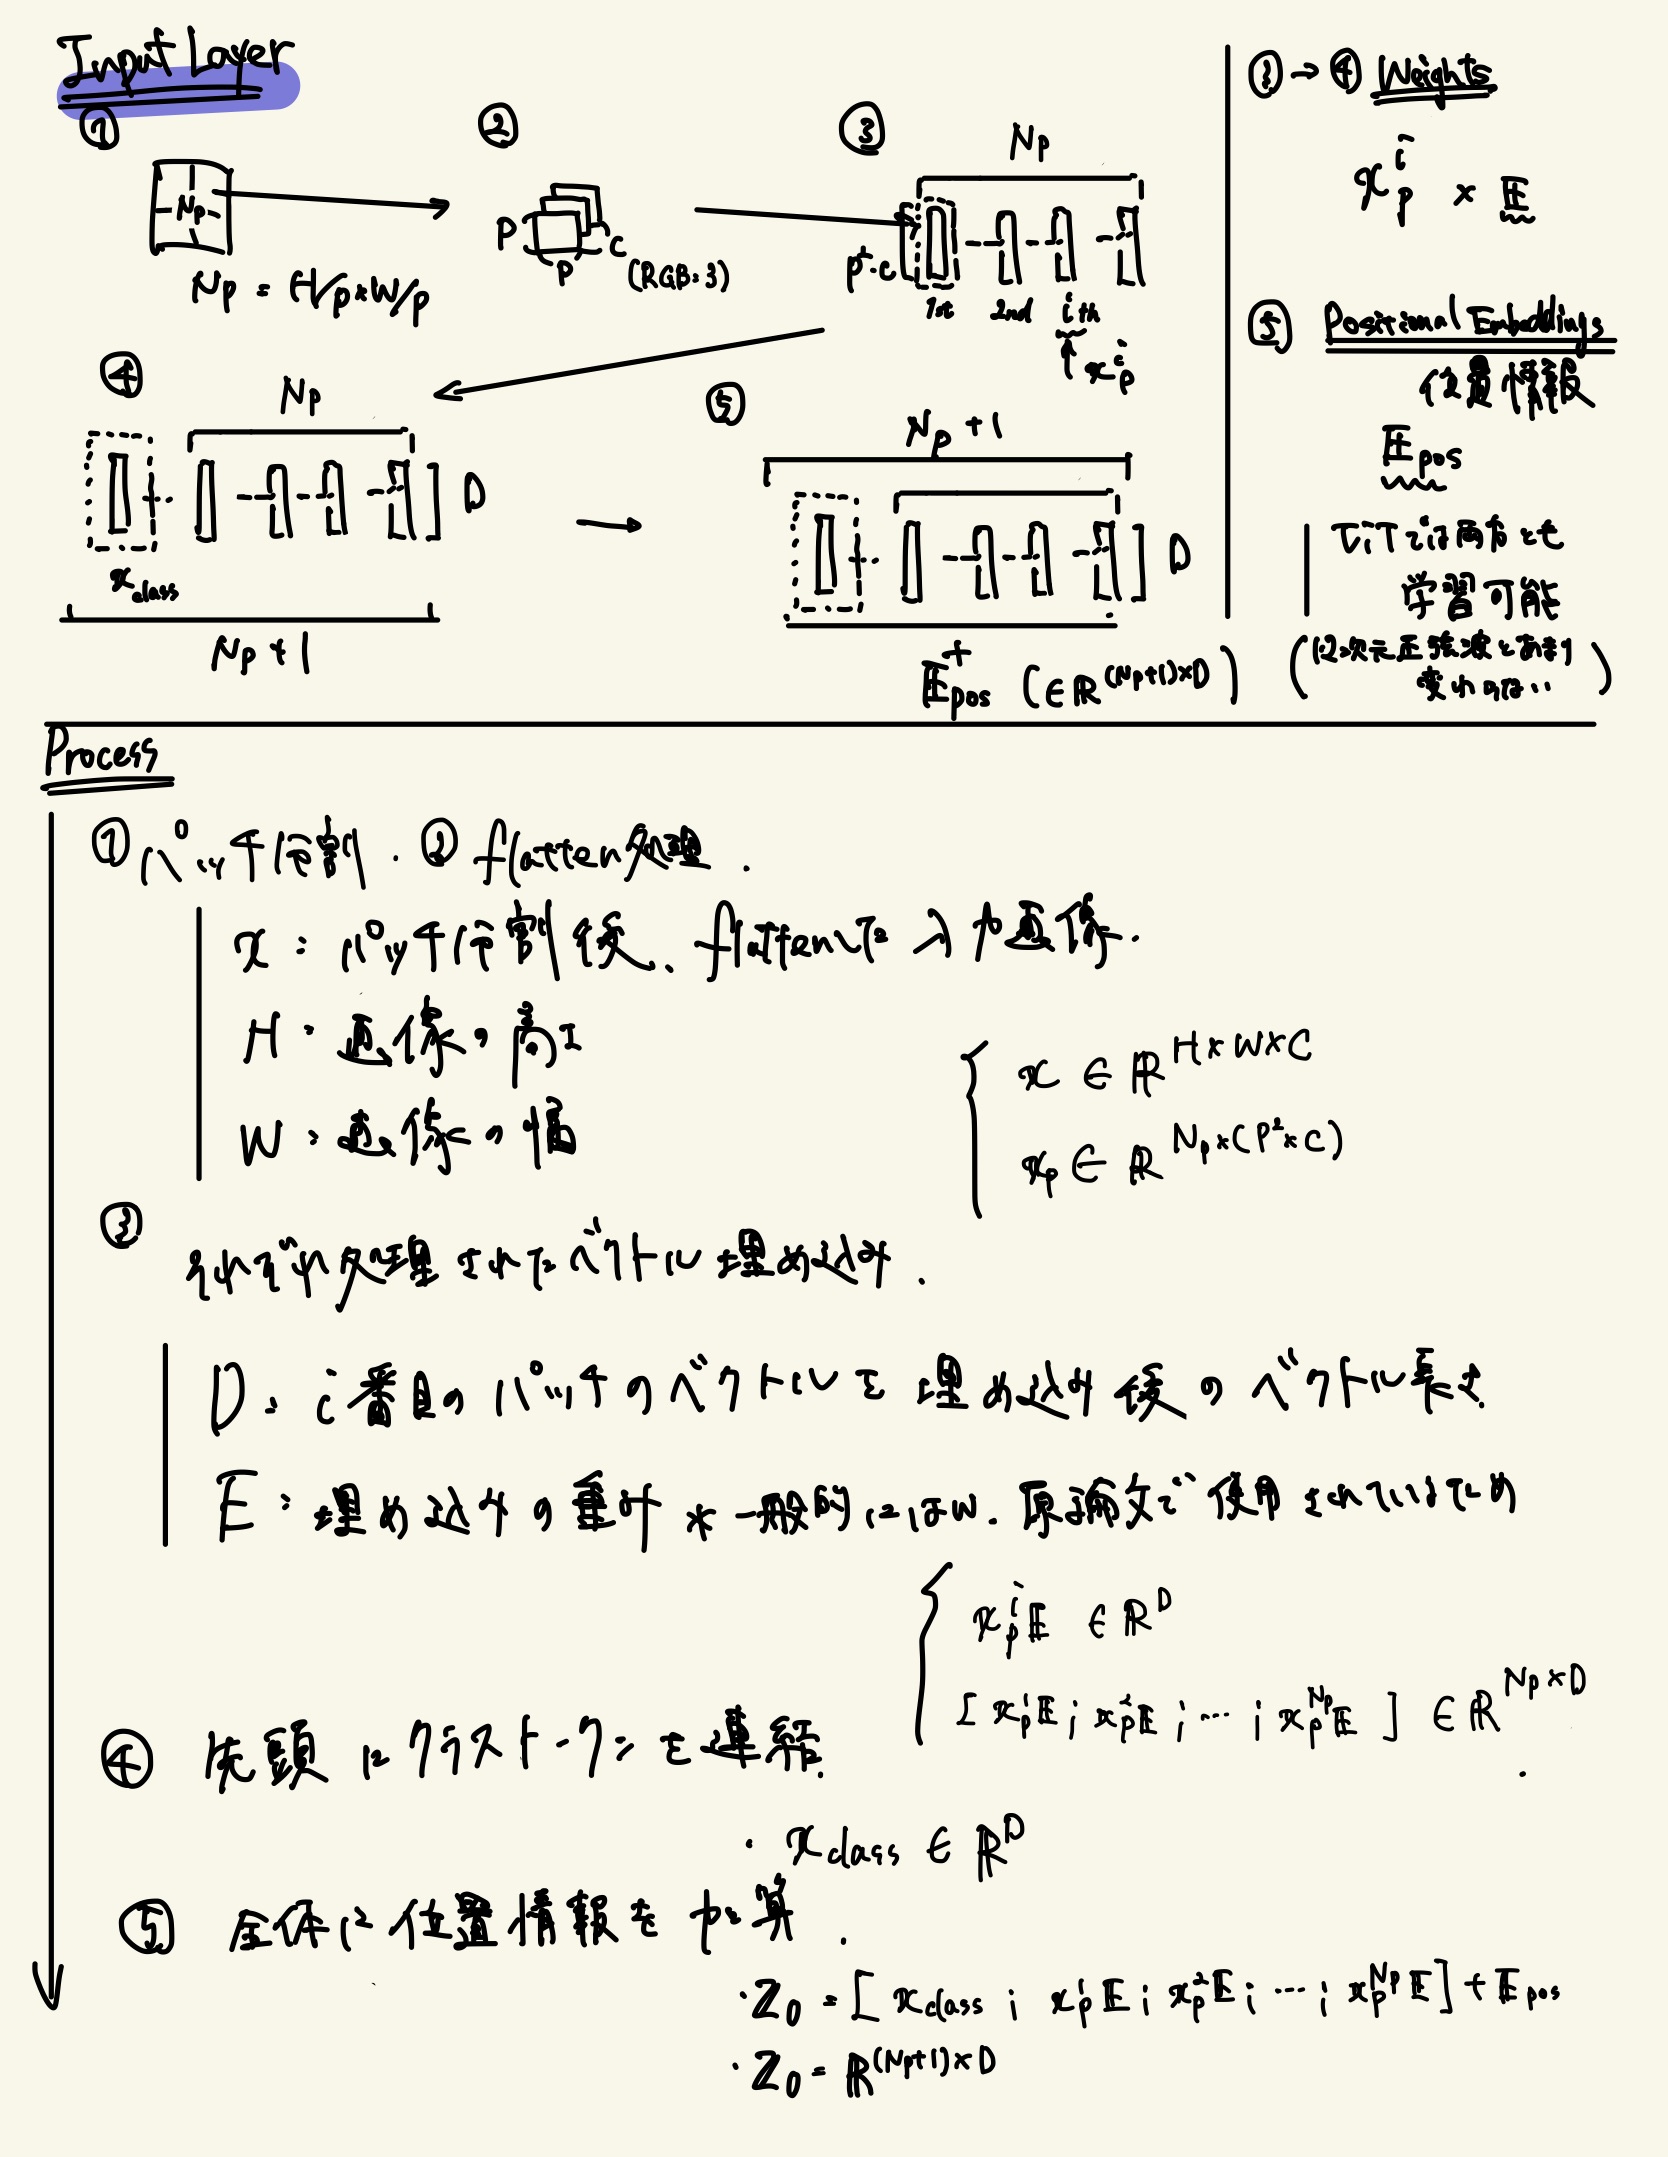 Input Layer
①
Np
Np = H/p×W/p
②
P
P
C
(RGB:3)
③
Np
p²・c
1st 2nd i th
x_p^i
④
Np
D
x_class
Np+1
⑤
Np+1
D
+
E_pos (∈R^(Np+1)×D)
③→④ Weights
x_p^i × E
⑤ Positional Embeddings
位置情報
E_pos
ViTでは両方とも
学習可能
(1,2次元正弦波とあまり
変わらない)
Process
①パッチ分割. ② flatten処理.
x: パッチ分割後、flattenした入力画像.
H: 画像の高さ
W: 画像の幅
x ∈ R^H×W×C
x_p ∈ R^Np×(P²×C)
③
それぞれ処理されたベクトル埋め込み.
D: i番目のパッチのベクトルを埋め込み後のベクトル長さ.
E: 埋め込みの重み *一般的にはW. 原論文で使用されているため
x_p^i E ∈ R^D
[x_p^1 E; x_p^2 E; … ; x_p^Np E] ∈ R^Np×D.
④ 先頭にクラストークンを連結.
・x_class ∈ R^D
⑤ 全体に位置情報を加算.
・Z_0 = [x_class; x_p^1 E; x_p^2 E; … ; x_p^Np E] + E_pos
・Z_0 = R^(Np+1)×D